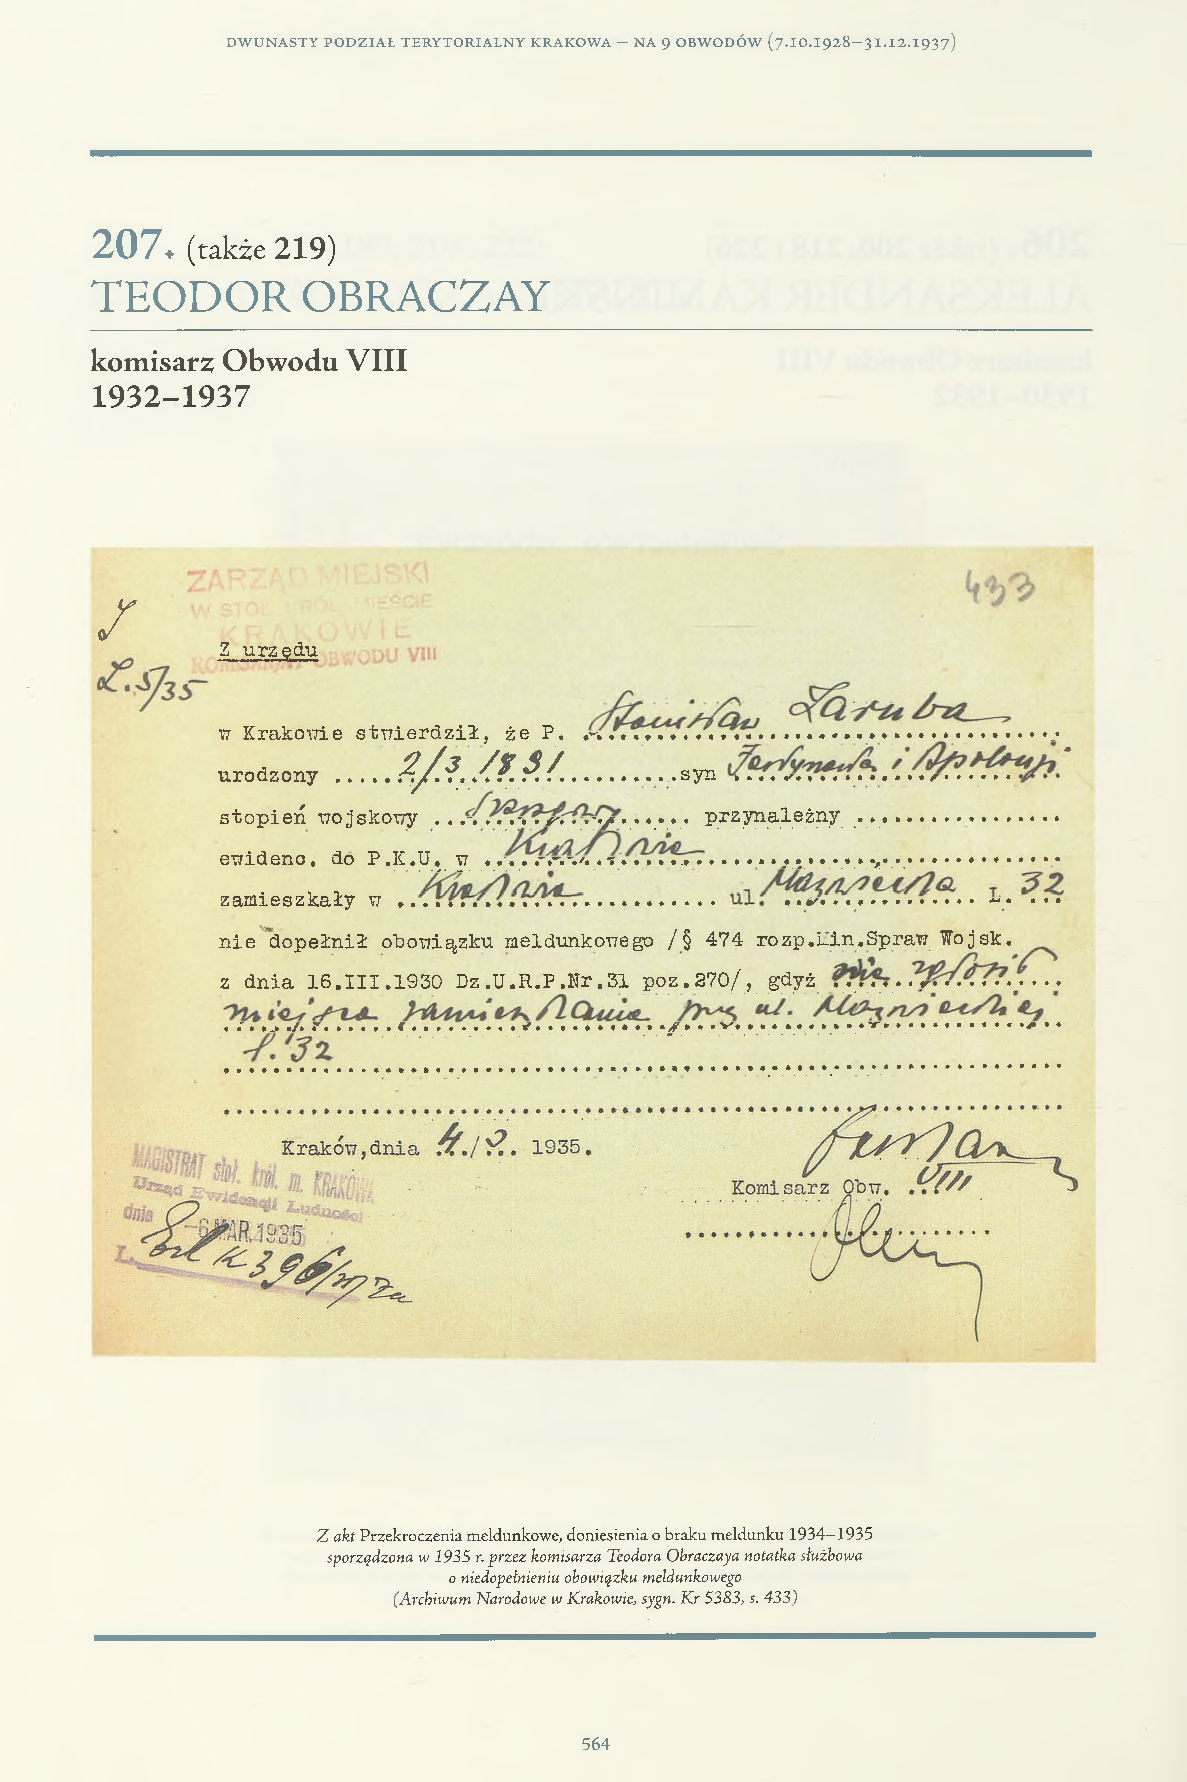 DWUNASTY PODZIAŁ TERYTORIALNY KRAKOWA — NA 9 OBWODÓW (7.10.1928–31.12.1937)
207. (także 219)
TEODOR OBRACZAY
komisarz Obwodu VIII
1932–1937
ZARZĄD MIEJSKI
W STOŁ. KRÓL. MIEŚCIE
KRAKOWIE
KOMISARJAT OBWODU VIII
433
L. 5/35
Z urzędu
w Krakowie stwierdził, że P. Stanisław Zaruba
urodzony 2/3 1891 syn Ferdynanda i Apolonji
stopień wojskowy przynależny
ewidenc. do P.K.U. w Krakowie
zamieszkały w Krakowie ul. Mazowiecka L. 32
nie dopełnił obowiązku meldunkowego /§ 474 rozp.Min.Spraw Wojsk.
z dnia 16.III.1930 Dz.U.R.P.Nr.31 poz.270/, gdyż nie zgłosił
miejsca zamieszkania przy ul. Mazowieckiej
l. 32
Kraków,dnia 4./3. 1935.
Komisarz Obw. VIII
MAGISTRAT stoł. król. m. KRAKOWA
Urząd Ewidencji Ludności
dnia -6 MAR. 1935
L.
Z akt Przekroczenia meldunkowe, doniesienia o braku meldunku 1934–1935
sporządzona w 1935 r. przez komisarza Teodora Obraczaya notatka służbowa
o niedopełnieniu obowiązku meldunkowego
(Archiwum Narodowe w Krakowie, sygn. Kr 5383, s. 433)
564